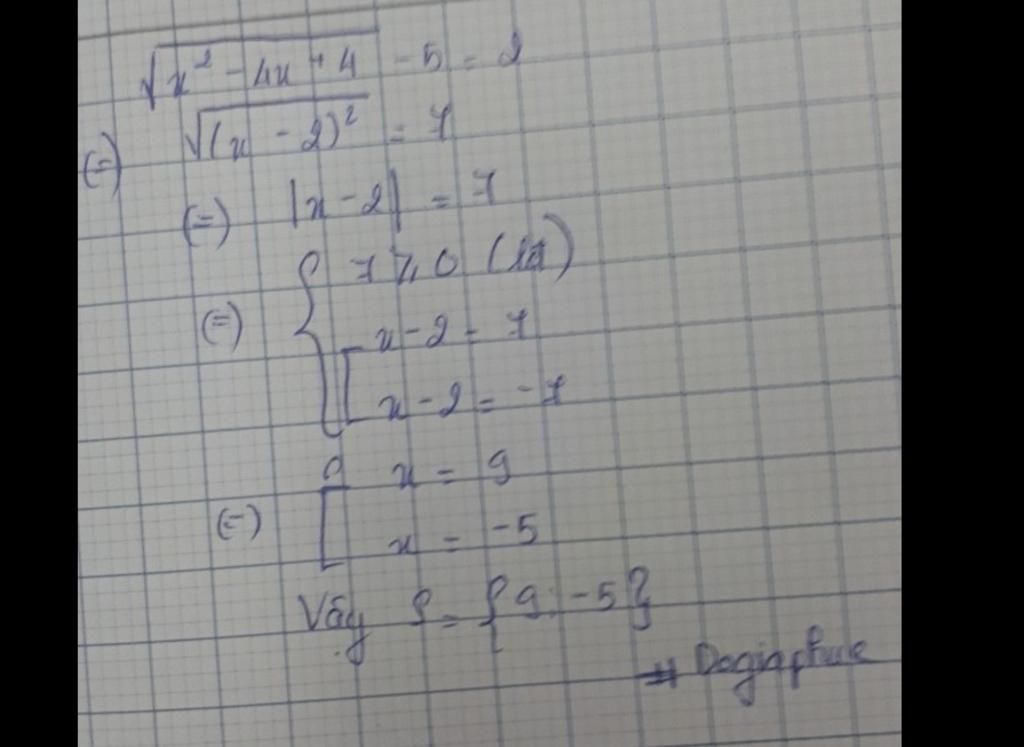 √(x² - 4x + 4) - 5 = 2
(=) √((x - 2)²) = 7
(=) |x - 2| = 7
(=) { 7 ≥ 0 (lđ)
[ x - 2 = 7
x - 2 = -7
(=) [ x = 9
x = -5
Vậy S = {9; -5}
# Dogiaphuc